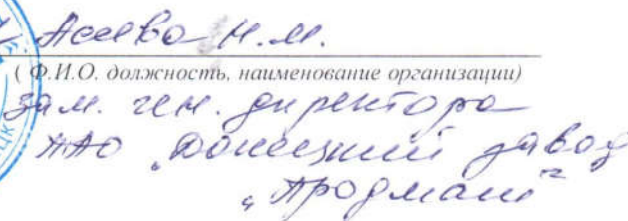 Асеева Н.М.
( Ф.И.О. должность, наименование организации)
зам. ген. директора
ПАО "Донецкий завод
"Продмаш"